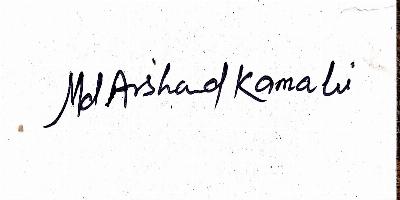 Md Arshad Kamali